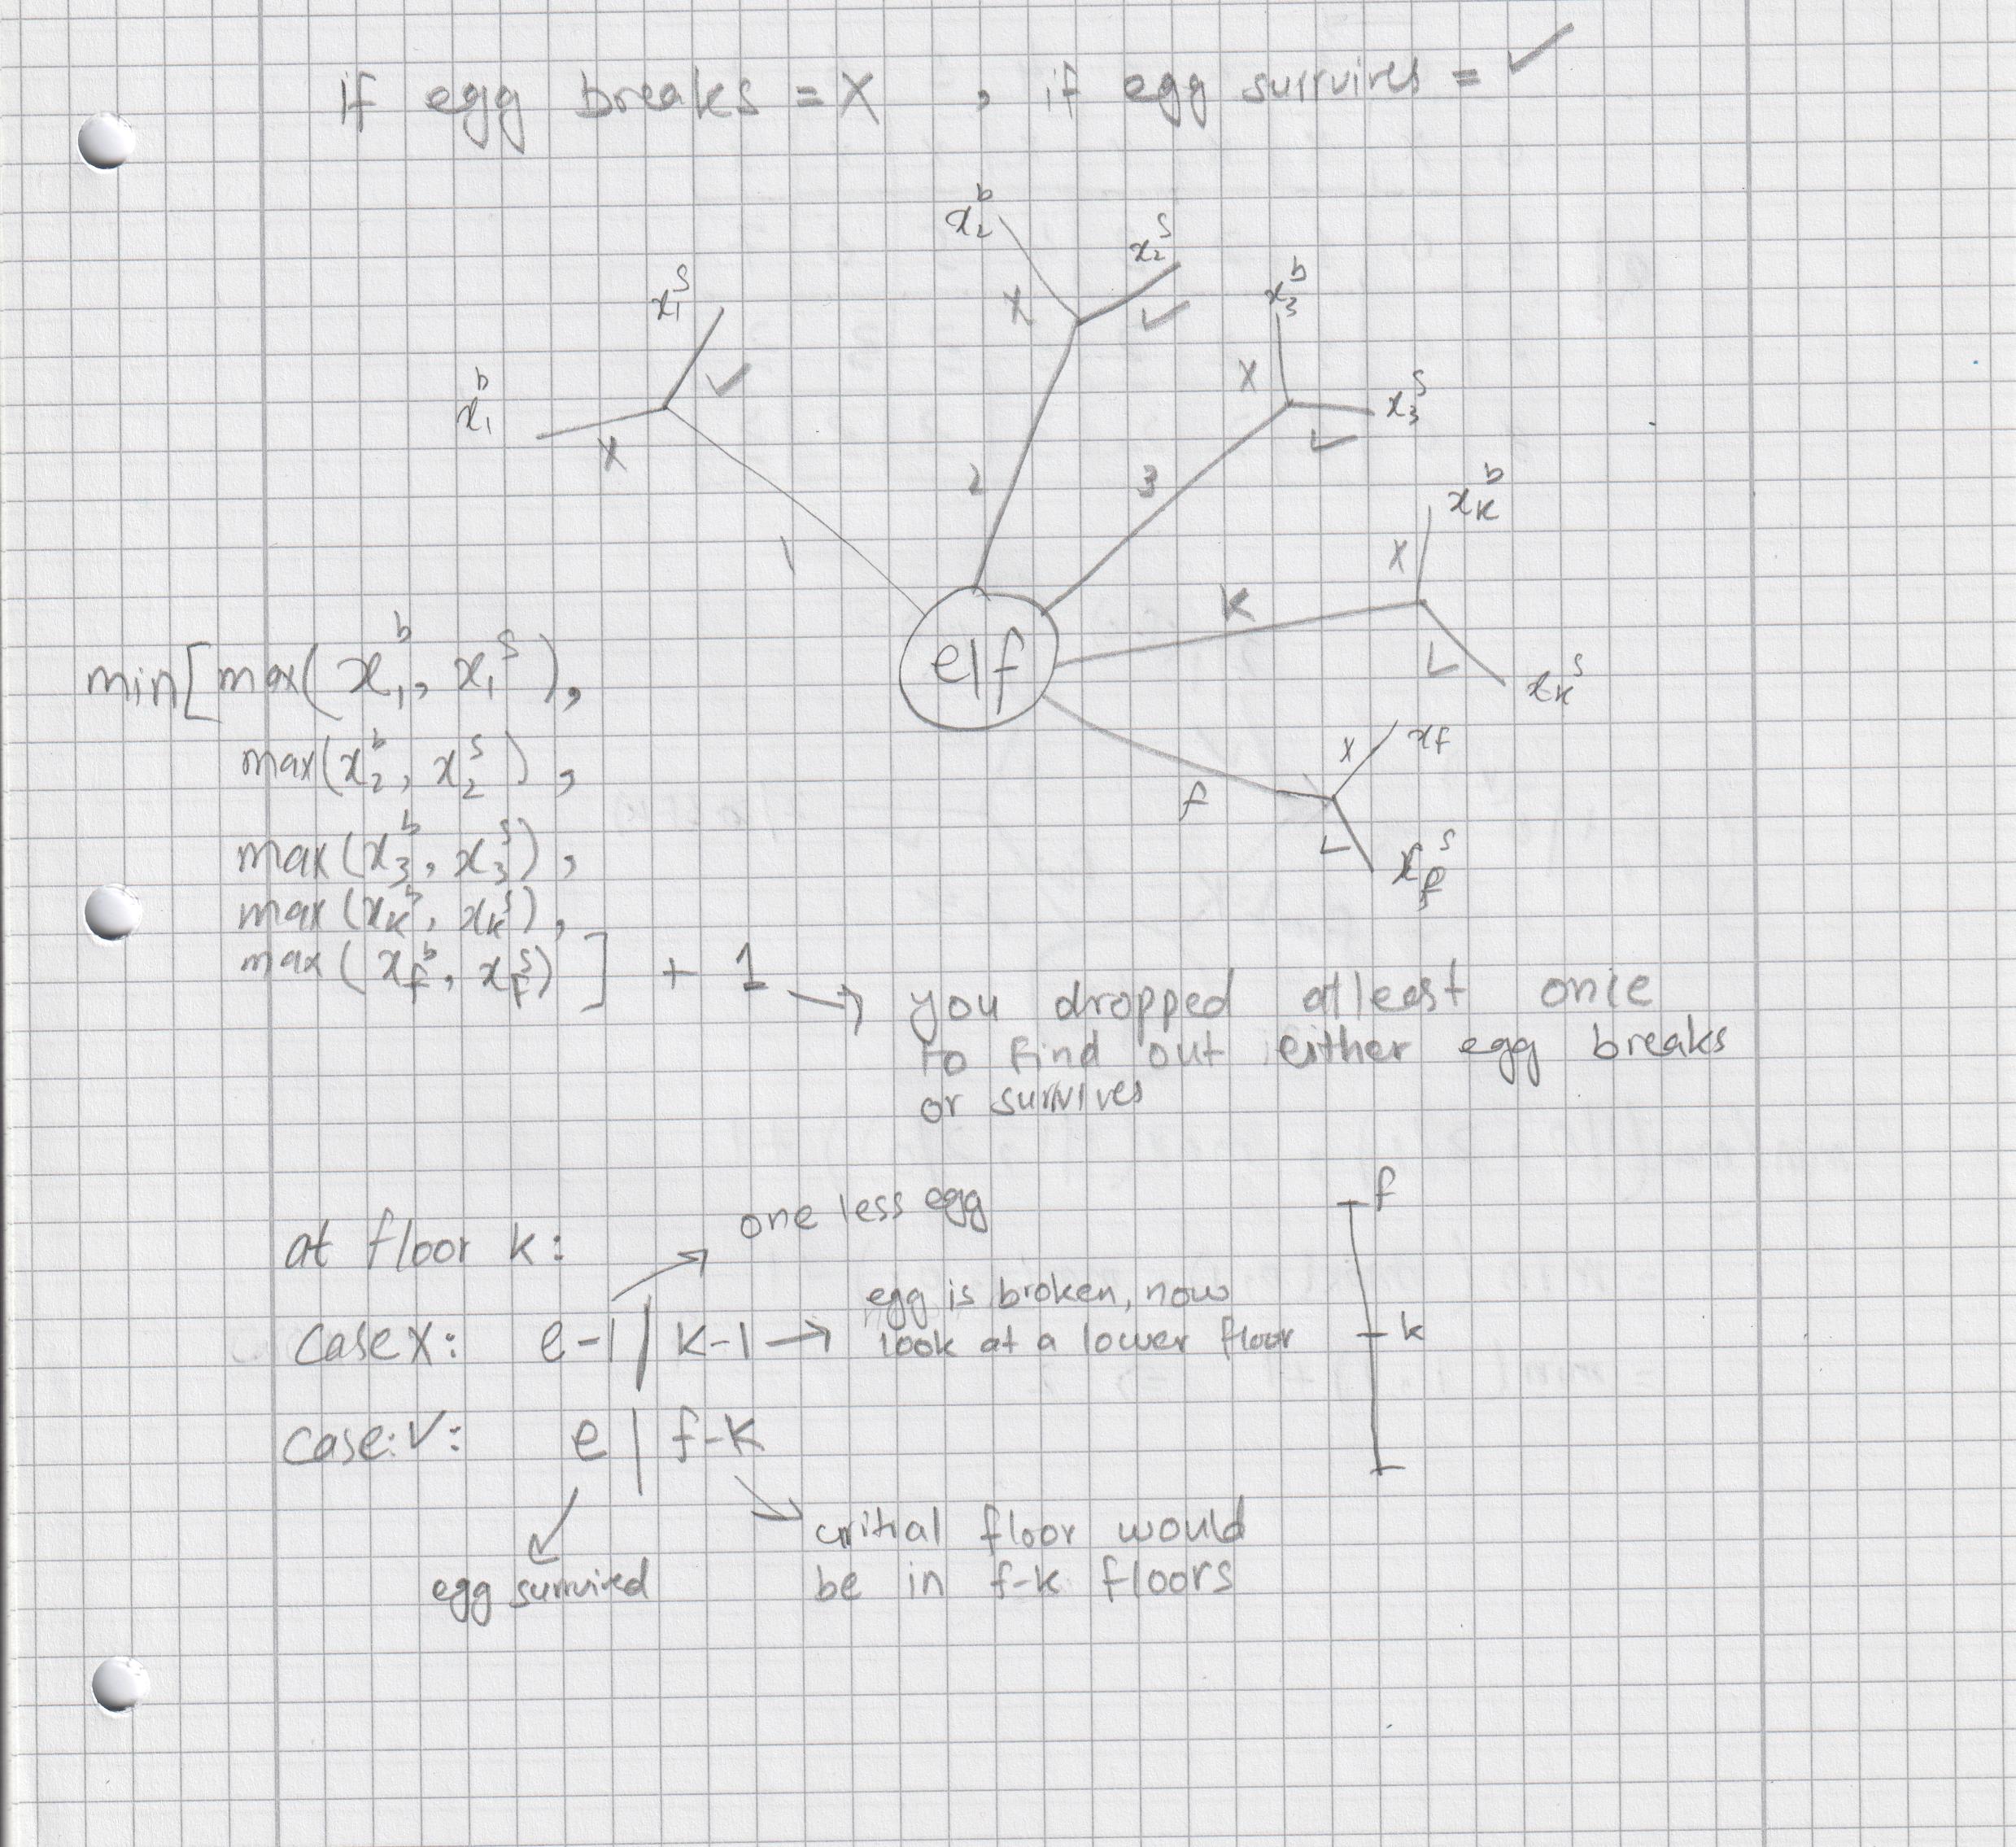 if egg breaks = X , if egg survives = ✓
x₂ᵇ
x₂ˢ
X
✓
x₁ˢ
✓
x₁ᵇ
X
x₃ᵇ
X
x₃ˢ
✓
1
2
3
xₖᵇ
X
K
✓
xₖˢ
e|f
X
xf
f
✓
x_fˢ
min[max(x₁ᵇ, x₁ˢ),
max(x₂ᵇ, x₂ˢ),
max(x₃ᵇ, x₃ˢ),
max(xₖᵇ, xₖˢ),
max(x_fᵇ, x_fˢ)] + 1 →
you dropped atleast once
to find out either egg breaks
or survives
at floor k:
one less egg
case X: e-1 | k-1 →
egg is broken, now
look at a lower floor
case:✓: e | f-k
egg survived
critial floor would
be in f-k floors
f
k